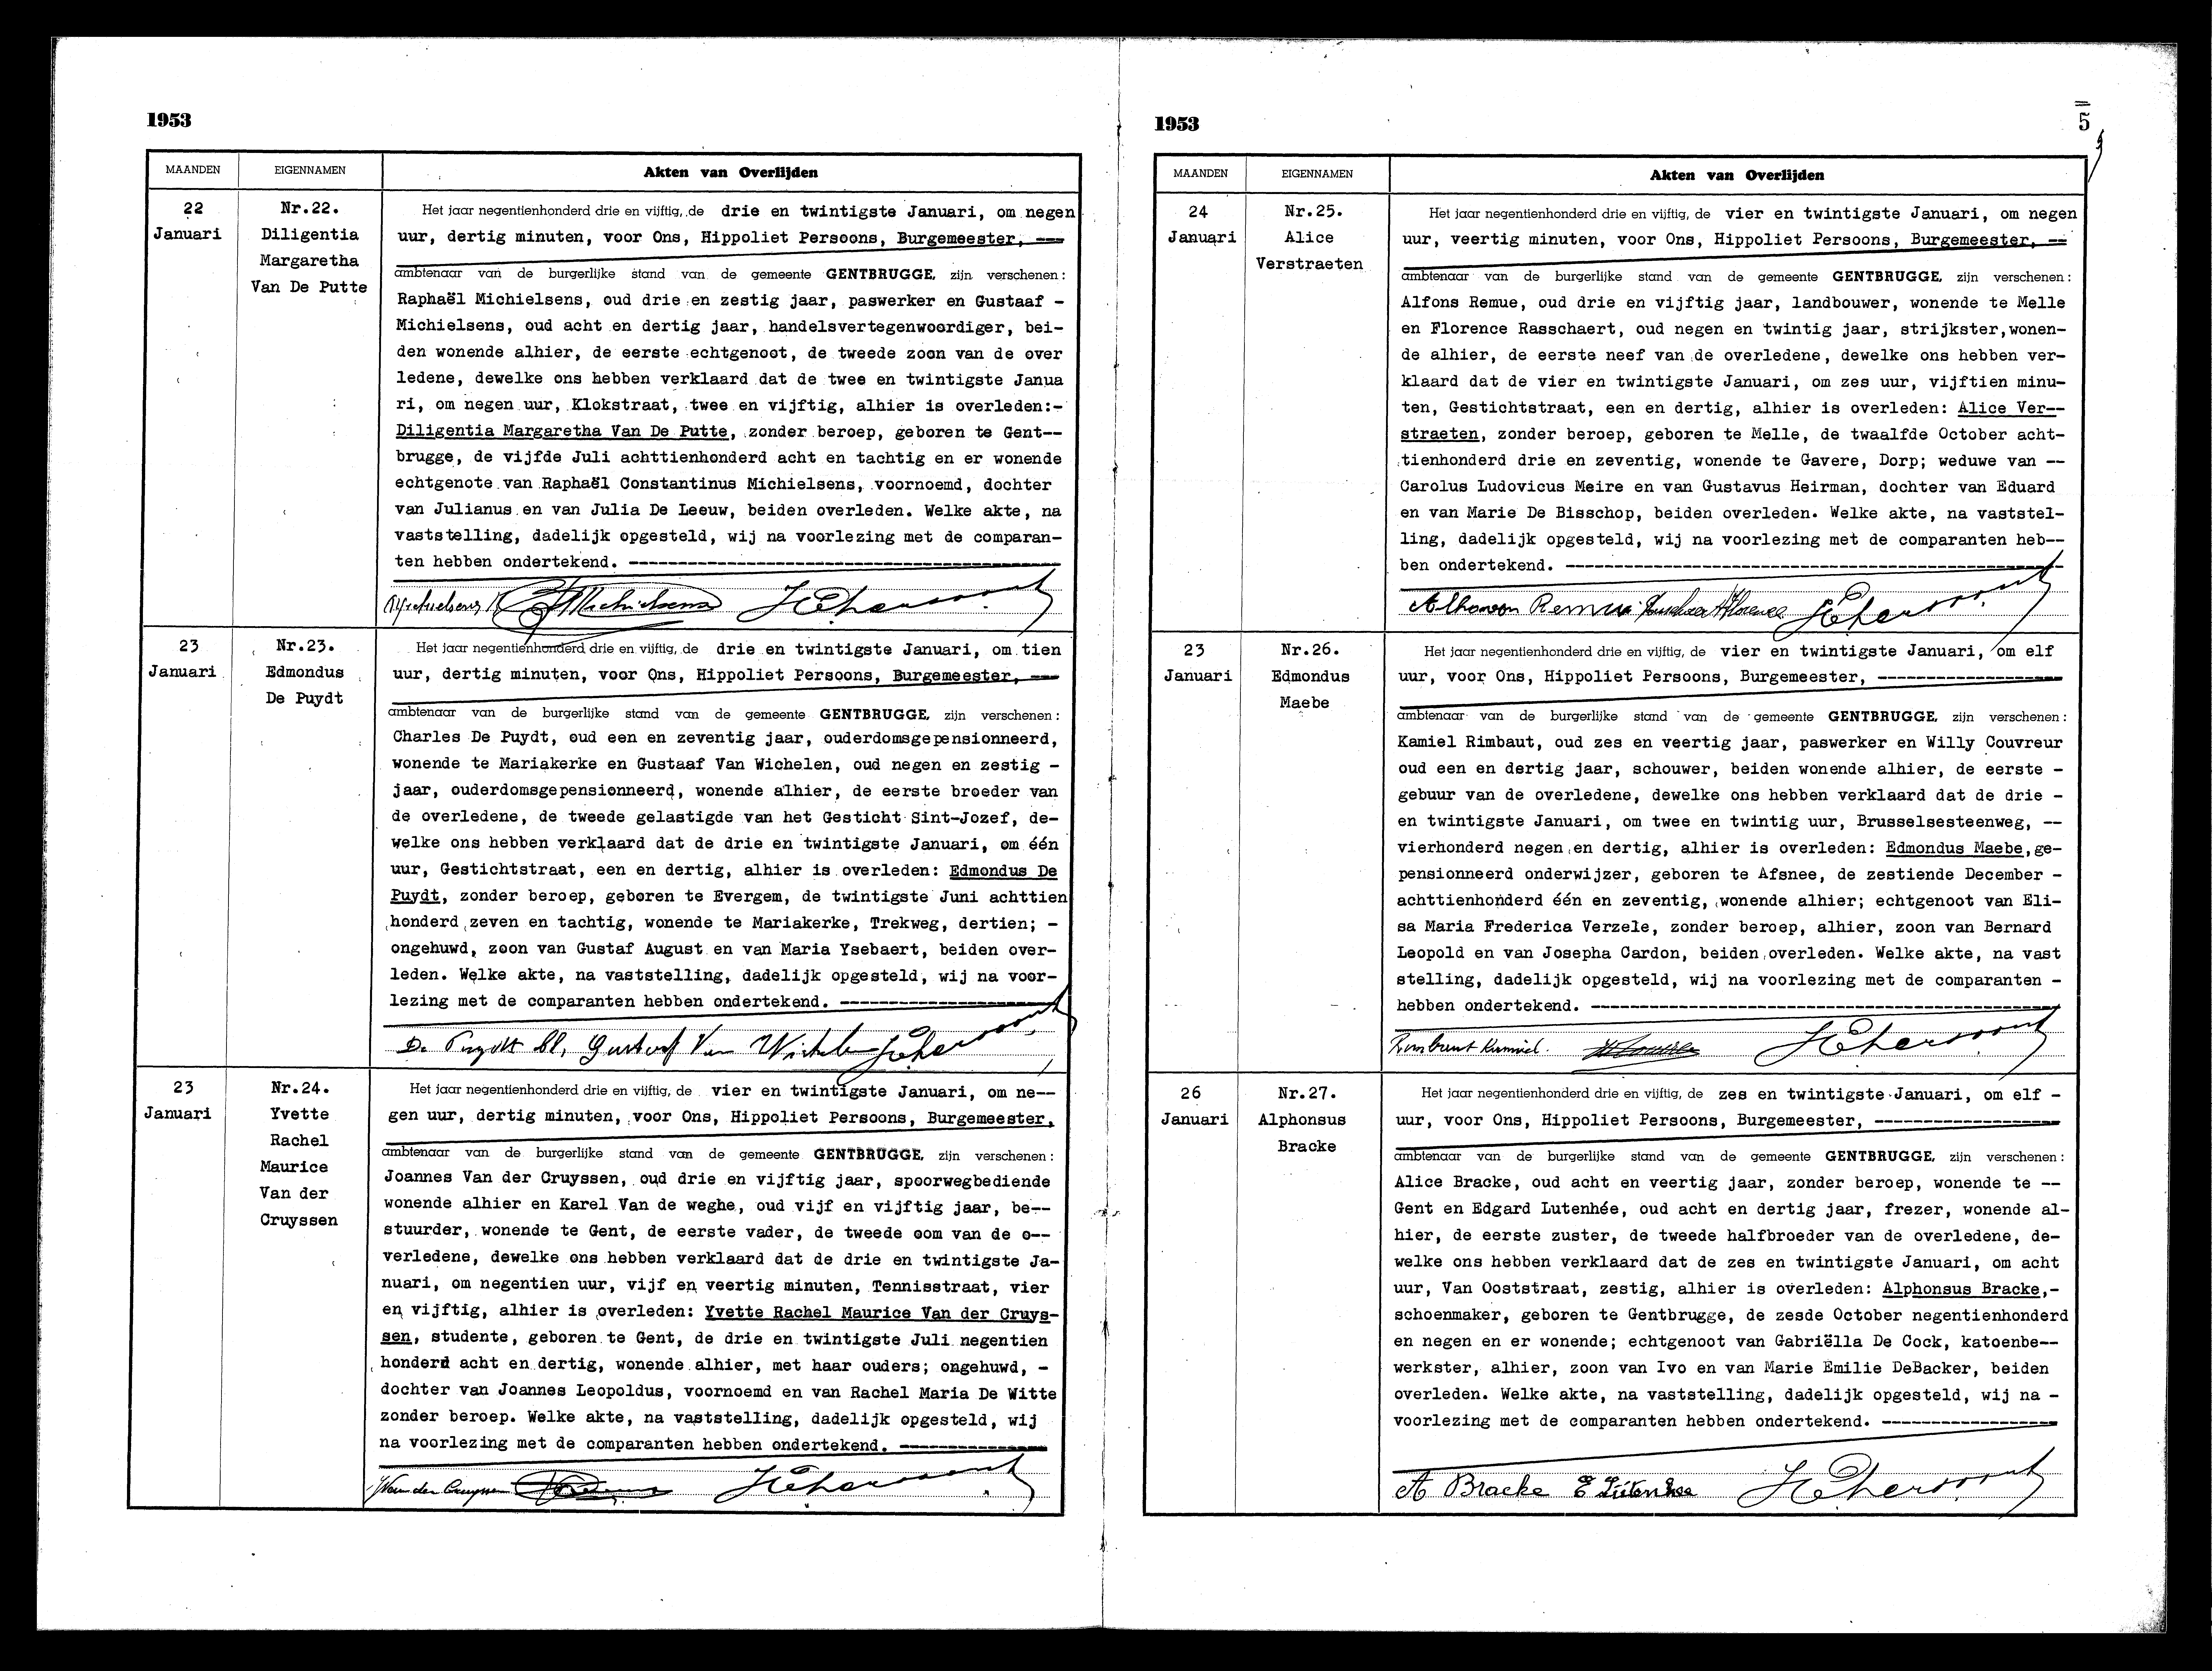 1953
MAANDEN
EIGENNAMEN
Akten van Overlijden
22
Januari
Nr.22.
Diligentia
Margaretha
Van De Putte
Het jaar negentienhonderd drie en vijftig, de drie en twintigste Januari, om negen
uur, dertig minuten, voor Ons, Hippoliet Persoons, Burgemeester, ---
ambtenaar van de burgerlijke stand van de gemeente GENTBRUGGE, zijn verschenen:
Raphaël Michielsens, oud drie en zestig jaar, paswerker en Gustaaf -
Michielsens, oud acht en dertig jaar, handelsvertegenwoordiger, bei-
den wonende alhier, de eerste echtgenoot, de tweede zoon van de over
ledene, dewelke ons hebben verklaard dat de twee en twintigste Janua
ri, om negen uur, Klokstraat, twee en vijftig, alhier is overleden:-
Diligentia Margaretha Van De Putte, zonder beroep, geboren te Gent--
brugge, de vijfde Juli achttienhonderd acht en tachtig en er wonende
echtgenote van Raphaël Constantinus Michielsens, voornoemd, dochter
van Julianus en van Julia De Leeuw, beiden overleden. Welke akte, na
vaststelling, dadelijk opgesteld, wij na voorlezing met de comparan-
ten hebben ondertekend. ---
Michielsens R Michielsens HPersoons
23
Januari
Nr.23.
Edmondus
De Puydt
Het jaar negentienhonderd drie en vijftig, de drie en twintigste Januari, om tien
uur, dertig minuten, voor Ons, Hippoliet Persoons, Burgemeester, ---
ambtenaar van de burgerlijke stand van de gemeente GENTBRUGGE, zijn verschenen:
Charles De Puydt, oud een en zeventig jaar, ouderdomsgepensionneerd,
wonende te Mariakerke en Gustaaf Van Wichelen, oud negen en zestig -
jaar, ouderdomsgepensionneerd, wonende alhier, de eerste broeder van
de overledene, de tweede gelastigde van het Gesticht Sint-Jozef, de-
welke ons hebben verklaard dat de drie en twintigste Januari, om één
uur, Gestichtstraat, een en dertig, alhier is overleden: Edmondus De
Puydt, zonder beroep, geboren te Evergem, de twintigste Juni achttien
honderd zeven en tachtig, wonende te Mariakerke, Trekweg, dertien; -
ongehuwd, zoon van Gustaf August en van Maria Ysebaert, beiden over-
leden. Welke akte, na vaststelling, dadelijk opgesteld, wij na voor-
lezing met de comparanten hebben ondertekend. ---
De Puydt Ch, Gustaaf Van Wichelen HPersoons
23
Januari
Nr.24.
Yvette
Rachel
Maurice
Van der
Cruyssen
Het jaar negentienhonderd drie en vijftig, de vier en twintigste Januari, om ne--
gen uur, dertig minuten, voor Ons, Hippoliet Persoons, Burgemeester,
ambtenaar van de burgerlijke stand van de gemeente GENTBRUGGE, zijn verschenen:
Joannes Van der Cruyssen, oud drie en vijftig jaar, spoorwegbediende
wonende alhier en Karel Van de weghe, oud vijf en vijftig jaar, be--
stuurder, wonende te Gent, de eerste vader, de tweede oom van de o--
verledene, dewelke ons hebben verklaard dat de drie en twintigste Ja-
nuari, om negentien uur, vijf en veertig minuten, Tennisstraat, vier
en vijftig, alhier is overleden: Yvette Rachel Maurice Van der Cruys-
sen, studente, geboren te Gent, de drie en twintigste Juli negentien
honderd acht en dertig, wonende alhier, met haar ouders; ongehuwd, -
dochter van Joannes Leopoldus, voornoemd en van Rachel Maria De Witte
zonder beroep. Welke akte, na vaststelling, dadelijk opgesteld, wij
na voorlezing met de comparanten hebben ondertekend. ---
Van der Cruyssen HPersoons
1953
5
MAANDEN
EIGENNAMEN
Akten van Overlijden
24
Januari
Nr.25.
Alice
Verstraeten
Het jaar negentienhonderd drie en vijftig, de vier en twintigste Januari, om negen
uur, veertig minuten, voor Ons, Hippoliet Persoons, Burgemeester, --
ambtenaar van de burgerlijke stand van de gemeente GENTBRUGGE, zijn verschenen:
Alfons Remue, oud drie en vijftig jaar, landbouwer, wonende te Melle
en Florence Rasschaert, oud negen en twintig jaar, strijkster,wonen-
de alhier, de eerste neef van de overledene, dewelke ons hebben ver-
klaard dat de vier en twintigste Januari, om zes uur, vijftien minu-
ten, Gestichtstraat, een en dertig, alhier is overleden: Alice Ver--
straeten, zonder beroep, geboren te Melle, de twaalfde October acht-
tienhonderd drie en zeventig, wonende te Gavere, Dorp; weduwe van --
Carolus Ludovicus Meire en van Gustavus Heirman, dochter van Eduard
en van Marie De Bisschop, beiden overleden. Welke akte, na vaststel-
ling, dadelijk opgesteld, wij na voorlezing met de comparanten heb--
ben ondertekend. ---
Remue Florence HPersoons
23
Januari
Nr.26.
Edmondus
Maebe
Het jaar negentienhonderd drie en vijftig, de vier en twintigste Januari, om elf
uur, voor Ons, Hippoliet Persoons, Burgemeester, ---
ambtenaar van de burgerlijke stand van de gemeente GENTBRUGGE, zijn verschenen:
Kamiel Rimbaut, oud zes en veertig jaar, paswerker en Willy Couvreur
oud een en dertig jaar, schouwer, beiden wonende alhier, de eerste -
gebuur van de overledene, dewelke ons hebben verklaard dat de drie -
en twintigste Januari, om twee en twintig uur, Brusselsesteenweg, --
vierhonderd negen en dertig, alhier is overleden: Edmondus Maebe,ge-
pensionneerd onderwijzer, geboren te Afsnee, de zestiende December -
achttienhonderd één en zeventig, wonende alhier; echtgenoot van Eli-
sa Maria Frederica Verzele, zonder beroep, alhier, zoon van Bernard
Leopold en van Josepha Cardon, beiden overleden. Welke akte, na vast
stelling, dadelijk opgesteld, wij na voorlezing met de comparanten -
hebben ondertekend. ---
Rimbaut Kamiel. HPersoons
26
Januari
Nr.27.
Alphonsus
Bracke
Het jaar negentienhonderd drie en vijftig, de zes en twintigste Januari, om elf -
uur, voor Ons, Hippoliet Persoons, Burgemeester, ---
ambtenaar van de burgerlijke stand van de gemeente GENTBRUGGE, zijn verschenen:
Alice Bracke, oud acht en veertig jaar, zonder beroep, wonende te --
Gent en Edgard Lutenhée, oud acht en dertig jaar, frezer, wonende al-
hier, de eerste zuster, de tweede halfbroeder van de overledene, de-
welke ons hebben verklaard dat de zes en twintigste Januari, om acht
uur, Van Ooststraat, zestig, alhier is overleden: Alphonsus Bracke,-
schoenmaker, geboren te Gentbrugge, de zesde October negentienhonderd
en negen en er wonende; echtgenoot van Gabriëlla De Cock, katoenbe--
werkster, alhier, zoon van Ivo en van Marie Emilie DeBacker, beiden
overleden. Welke akte, na vaststelling, dadelijk opgesteld, wij na -
voorlezing met de comparanten hebben ondertekend. ---
A Bracke E Lutenhée HPersoons